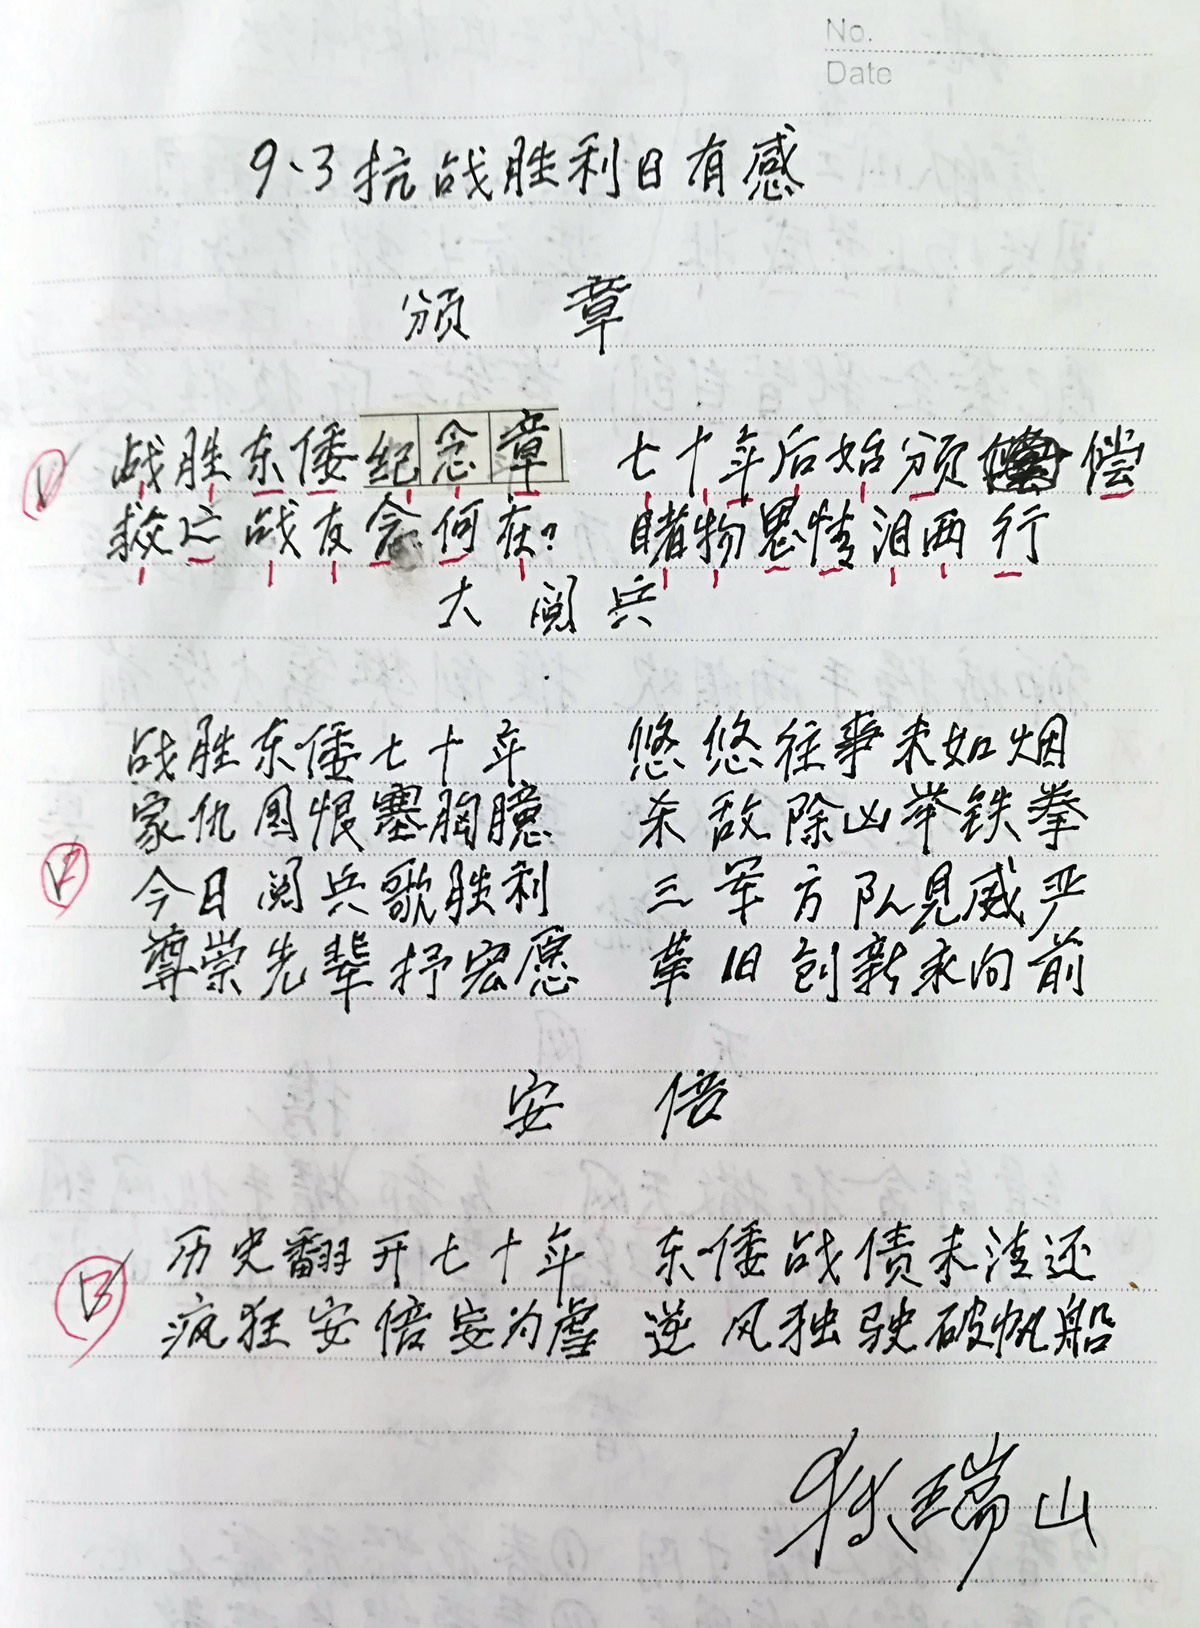 No.
Date
9·3抗战胜利日有感
颁 章
战胜东倭纪念章 七十年后始颁偿
救亡战友念何在? 睹物思情泪两行
大阅兵
战胜东倭七十年 悠悠往事未如烟
家仇国恨塞胸臆 杀敌除凶举铁拳
今日阅兵歌胜利 三军方队见威严
尊崇先辈抒宏愿 革旧创新永向前
安 倍
历史翻开七十年 东倭战债未清还
疯狂安倍妄为虐 逆风独驶破帆船
狄瑞山